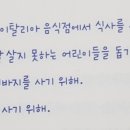 이탈리아 음식점에서 식사를
살지 못하는 어린이들을 돕기
바지를 사기 위해.
사기 위해.